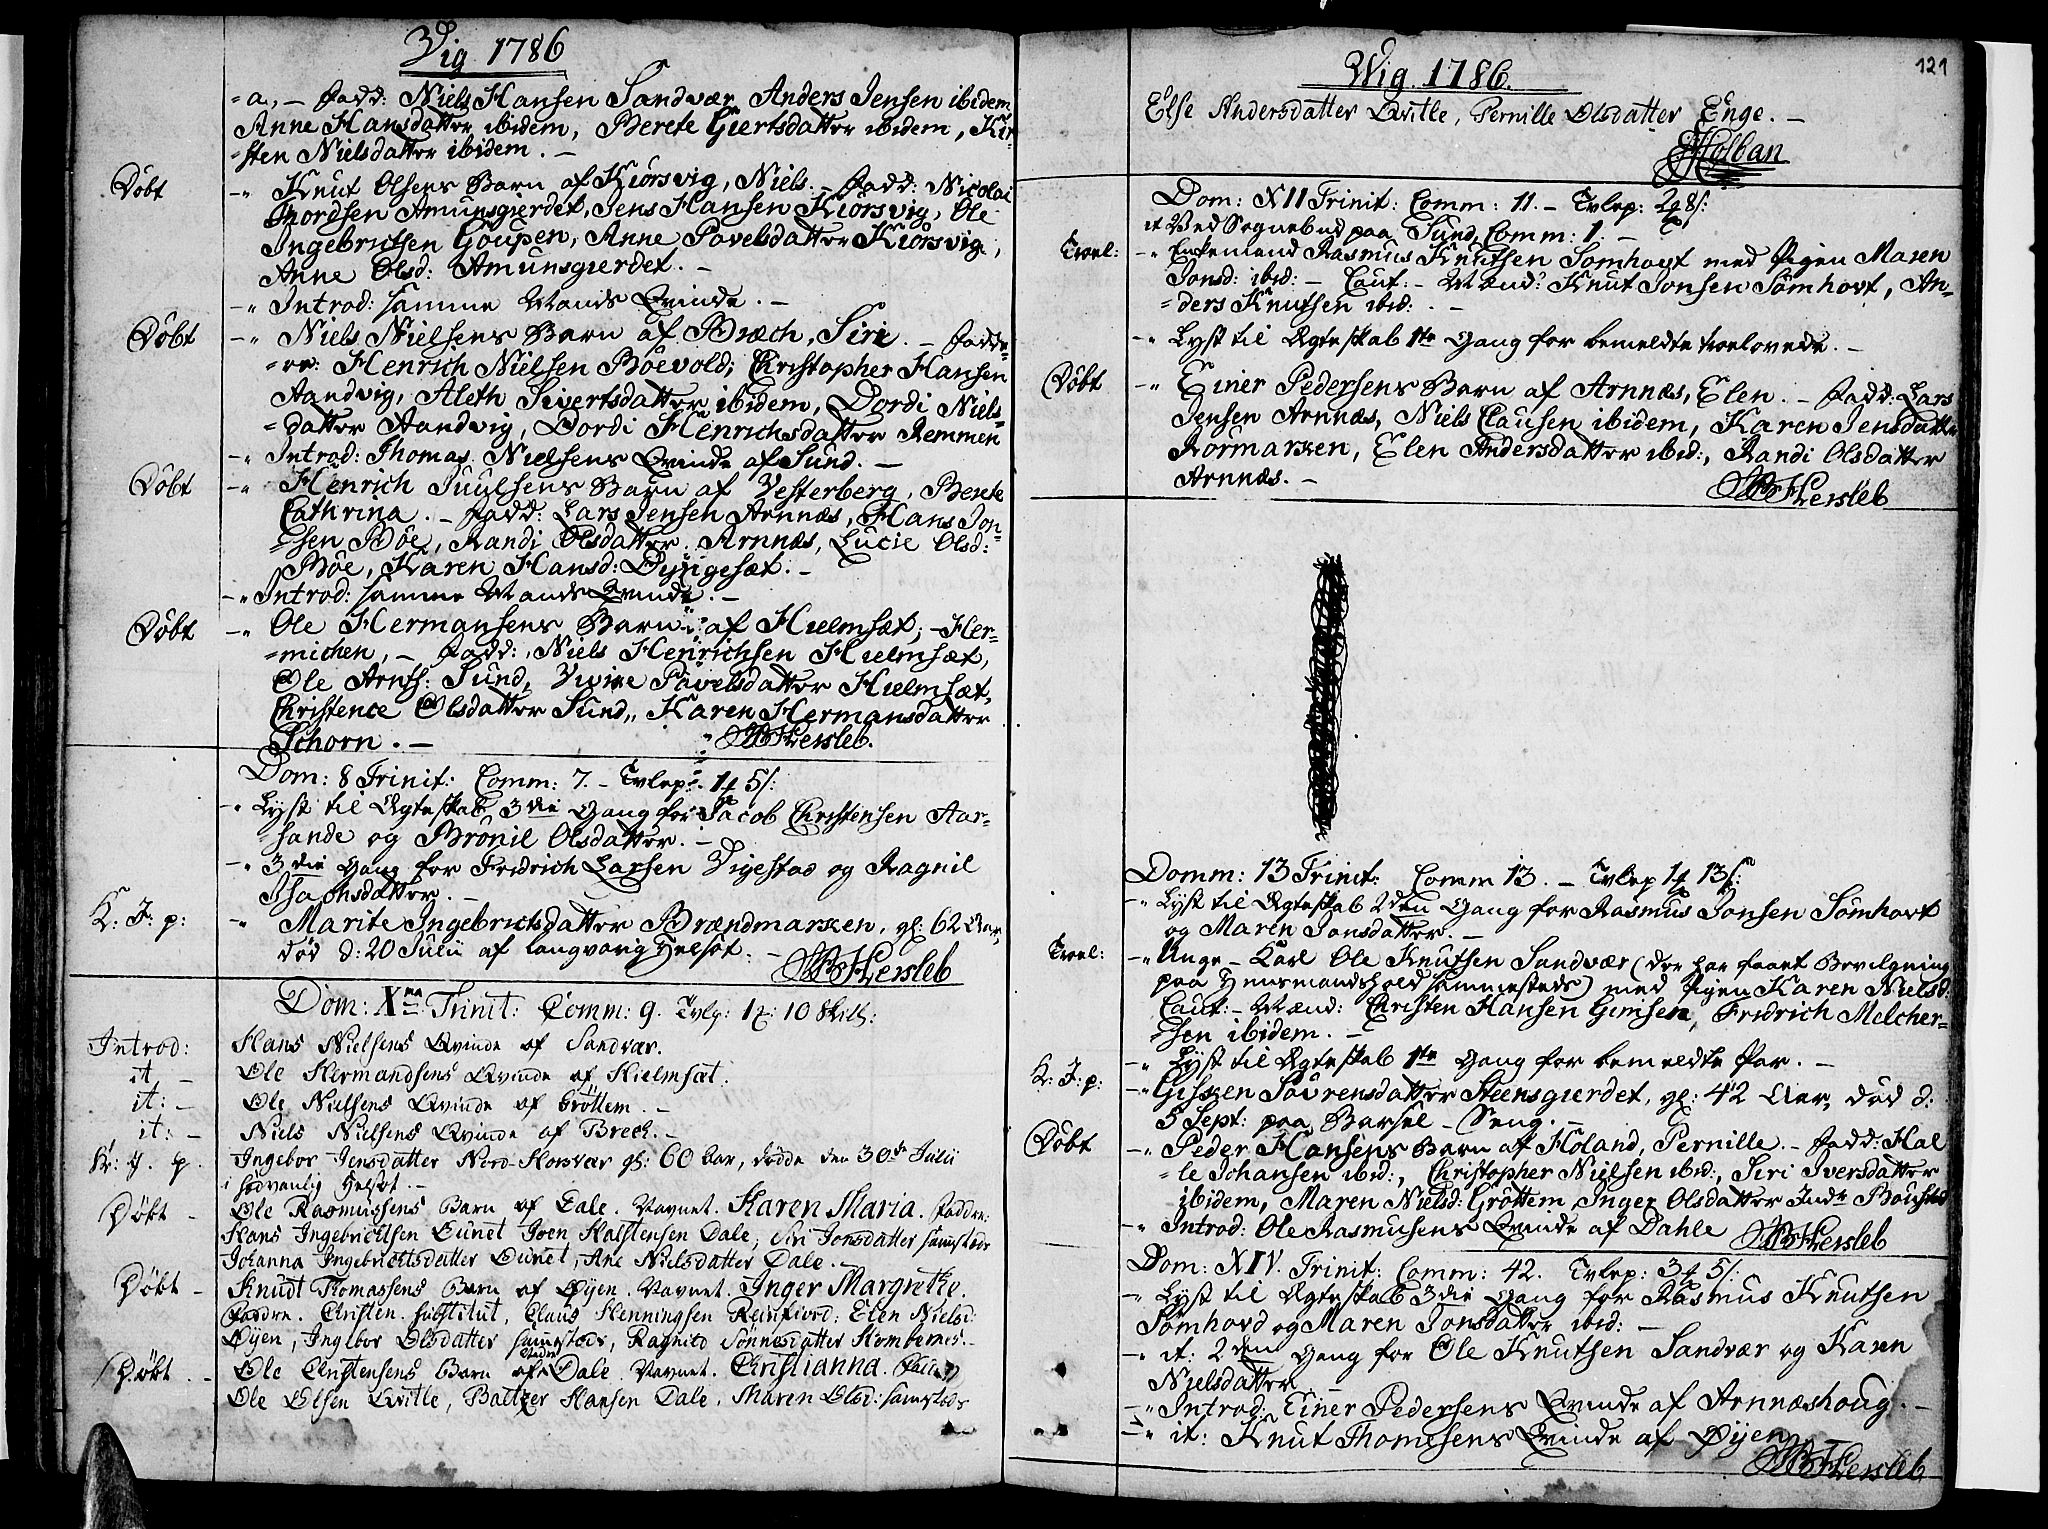 Vig 1786
=a, – Fadd: Niels Hansen Sandvær, Anders Jensen ibidem
Anne Hansdatter ibidem, Berete Giertsdatter ibidem, Kir=
=sten Nielsdatter ibidem. –
Döbt
–" Knut Olsens Barn af Kiörsvig, Niels. – Fadd: Nicolai
Thordsen Amunsgierdet, Jens Hansen Kiörsvig, Ole
Ingebrittsen Goupen, Anne Pavelsdatter Kiörsvig,
Anne Olsd: Amunsgierdet. –
–" Introd: samme Mands Qvinde. –
Döbt
–" Niels Nielsens Barn af Bræch, Siri. – Fadde=
=re: Henrich Nielsen Böevold, Christopher Hansen
Aandvig, Aleth Sivertsdatter ibidem, Dordi Niels=
=datter Aandvig, Dordi Henrichsdatter Remmen
–" Introd: Thomas Nielsens Qvinde af Sund. –
Döbt
–" Henrich Juulsens Barn af Vesterberg, Berete
Cathrina. – Fadd: Lars Jensen Arnnæs, Hans Jon=
=sen Böe, Randi Olsdatter Arnnæs, Lucie Olsd:
Böe, Karen Hansd: Dyngesæt. –
–" Introd: samme Mands Qvinde. –
Döbt
–" Ole Hermansens Barn af Hielmsæt, Her=
=michen, – Fadd: Niels Henrichsen Hielmsæt,
Ole Arnts: Sund, Pavelsdatter Hielmsæt,
Christence Olsdatter Sund, Karen Hermansdatter
Schorn. –
Hersleb.
Dom: 8 Trinit: Comm: 7. – Tvlep: 1 5/:
–" Lyst til Ægteskab 3die Gang for Jacob Christensen Aar=
=sande og Brönil Olsdatter. –
–" 3die Gang for Fridrich Larsen Vigestad og Ragnil
Isachsdatter. –
K: J: p:
" Marite Ingebrichsdatter Brændmarken, gl: 62 Aar,
död d: 20 Julii af langvarig Helsot. –
Hersleb
Dom: Xma Trinit: Comm: 9. Tvlp: 1: 10 skill:
Introd: Hans Nielsens Qvinde af Sandvær.
it – Ole Hermandsens Qvinde af Hielmsæt.
it: – Ole Nielsens Qvinde af Gröttem. –
it: – Niels Nielsens Qvinde af Brech. –
Kr: J. p. Ingebor Jensdatter Nord-Korsvær gl: 60 Aar, dödde den 30de Julii
i sædvanlig Helsot. –
Döbt – Ole Rasmussens Barn af Dale. Navnet. Karen Maria. Faddre:
Hans Ingebrichtsen Ounet Joen Halstensen Dale, Siri Jonsdatter samstods
Johanna Ingebrichtsdatter Ounet, Ane Nielsdatter Dale. –
Döbt – Knudt Thomassens Barn af Öyen. Navnet. Inger Margrethe.
Faddre. Christen Substitut, Claus Henningsen Reinfiord: Elen Nielsd:
Öyen, Ingebor Olsdatter samstods, Ragnild Sönnesdatter
Döbt – Ole Christensens Barn af Nedre Dale. Navnet. Christianna. Faddre
Ole Olsen Qvitle, Baltzer Hansen Dale, Maren Olsd: samstods
121
Wig 1786.
Else Andersdatter Qvitle, Pernille Olsdatter Enge. –
Holban
Dom: XII Trinit: Comm: 11. – Tvlep: 2 8/:
it Ved Sognebud paa Sund, Comm: 1. –
Trol:
–" Enkemand Rasmus Knutsen Sömhovt med Pigen Maren
Jonsd: ibid: – Caut: – Mænd: Knut Jonsen Sömhovt, An=
=ders Knutsen ibid: –
–" Lyst til Ægteskab 1te Gang for bemeldte trolovede. –
Döbt
–" Einer Pedersens Barn af Arnnæs, Elen. – Fadd: Lars
Jensen Arnnæs, Niels Clausen ibidem, Karen Jensdatter
Kormarken, Elen Andersdatter ibid:, Randi Olsdatter
Arnnæs. –
Hersleb
Domm: 13 Trinit: Comm 13. – Tvlep 1 13/:
–" Lyst til Ægteskab 2den Gang for Rasmus Jonsen Sömhovt
og Maren Jonsdatter. –
Trol:
–" Unge-Karl Ole Knutsen Sandvær (der har faaet Bevilgning
paa Hiemsmandshold sammesteds) med Pigen Karen Nielsd:
Caut: – Mænd: Christen Hansen Gimsen, Fridrich Melcher=
=sen ibidem. –
–" Lyst til Ægteskab 1te Gang for bemeldte Par. –
K: J: p:
–" Gisken Sövrensdatter Steensgierdet, gl: 42 Aar, död d:
5 Sept: paa Barsel-Seng. –
Döbt
–" Peder Hansens Barn af Holand, Pernille. – Fadd: Hal
=le Johansen ibid:, Christopher Nielsen ibid:, Siri Iversdatter
ibidem, Maren Nielsd: Gröttem, Inger Olsdatter Indr
–" Introd: Ole Rasmusens Qvinde af Dahle
Hersleb
Dom: XIV. Trinit: Comm: 42. Tvlep: 3 5/:
–" Lyst til Ægteskab 3die Gang for Rasmus Knutsen
Sömhovd og Maren Jonsdatter ibid: –
–" it: 2den Gang for Ole Knutsen Sandvær og Karen
Nielsdatter –
–" Introd: Einer Pedersens Qvinde af Arnnæshoug. –
–" it: Knut Thomesens Qvinde af Öyen
Hersleb